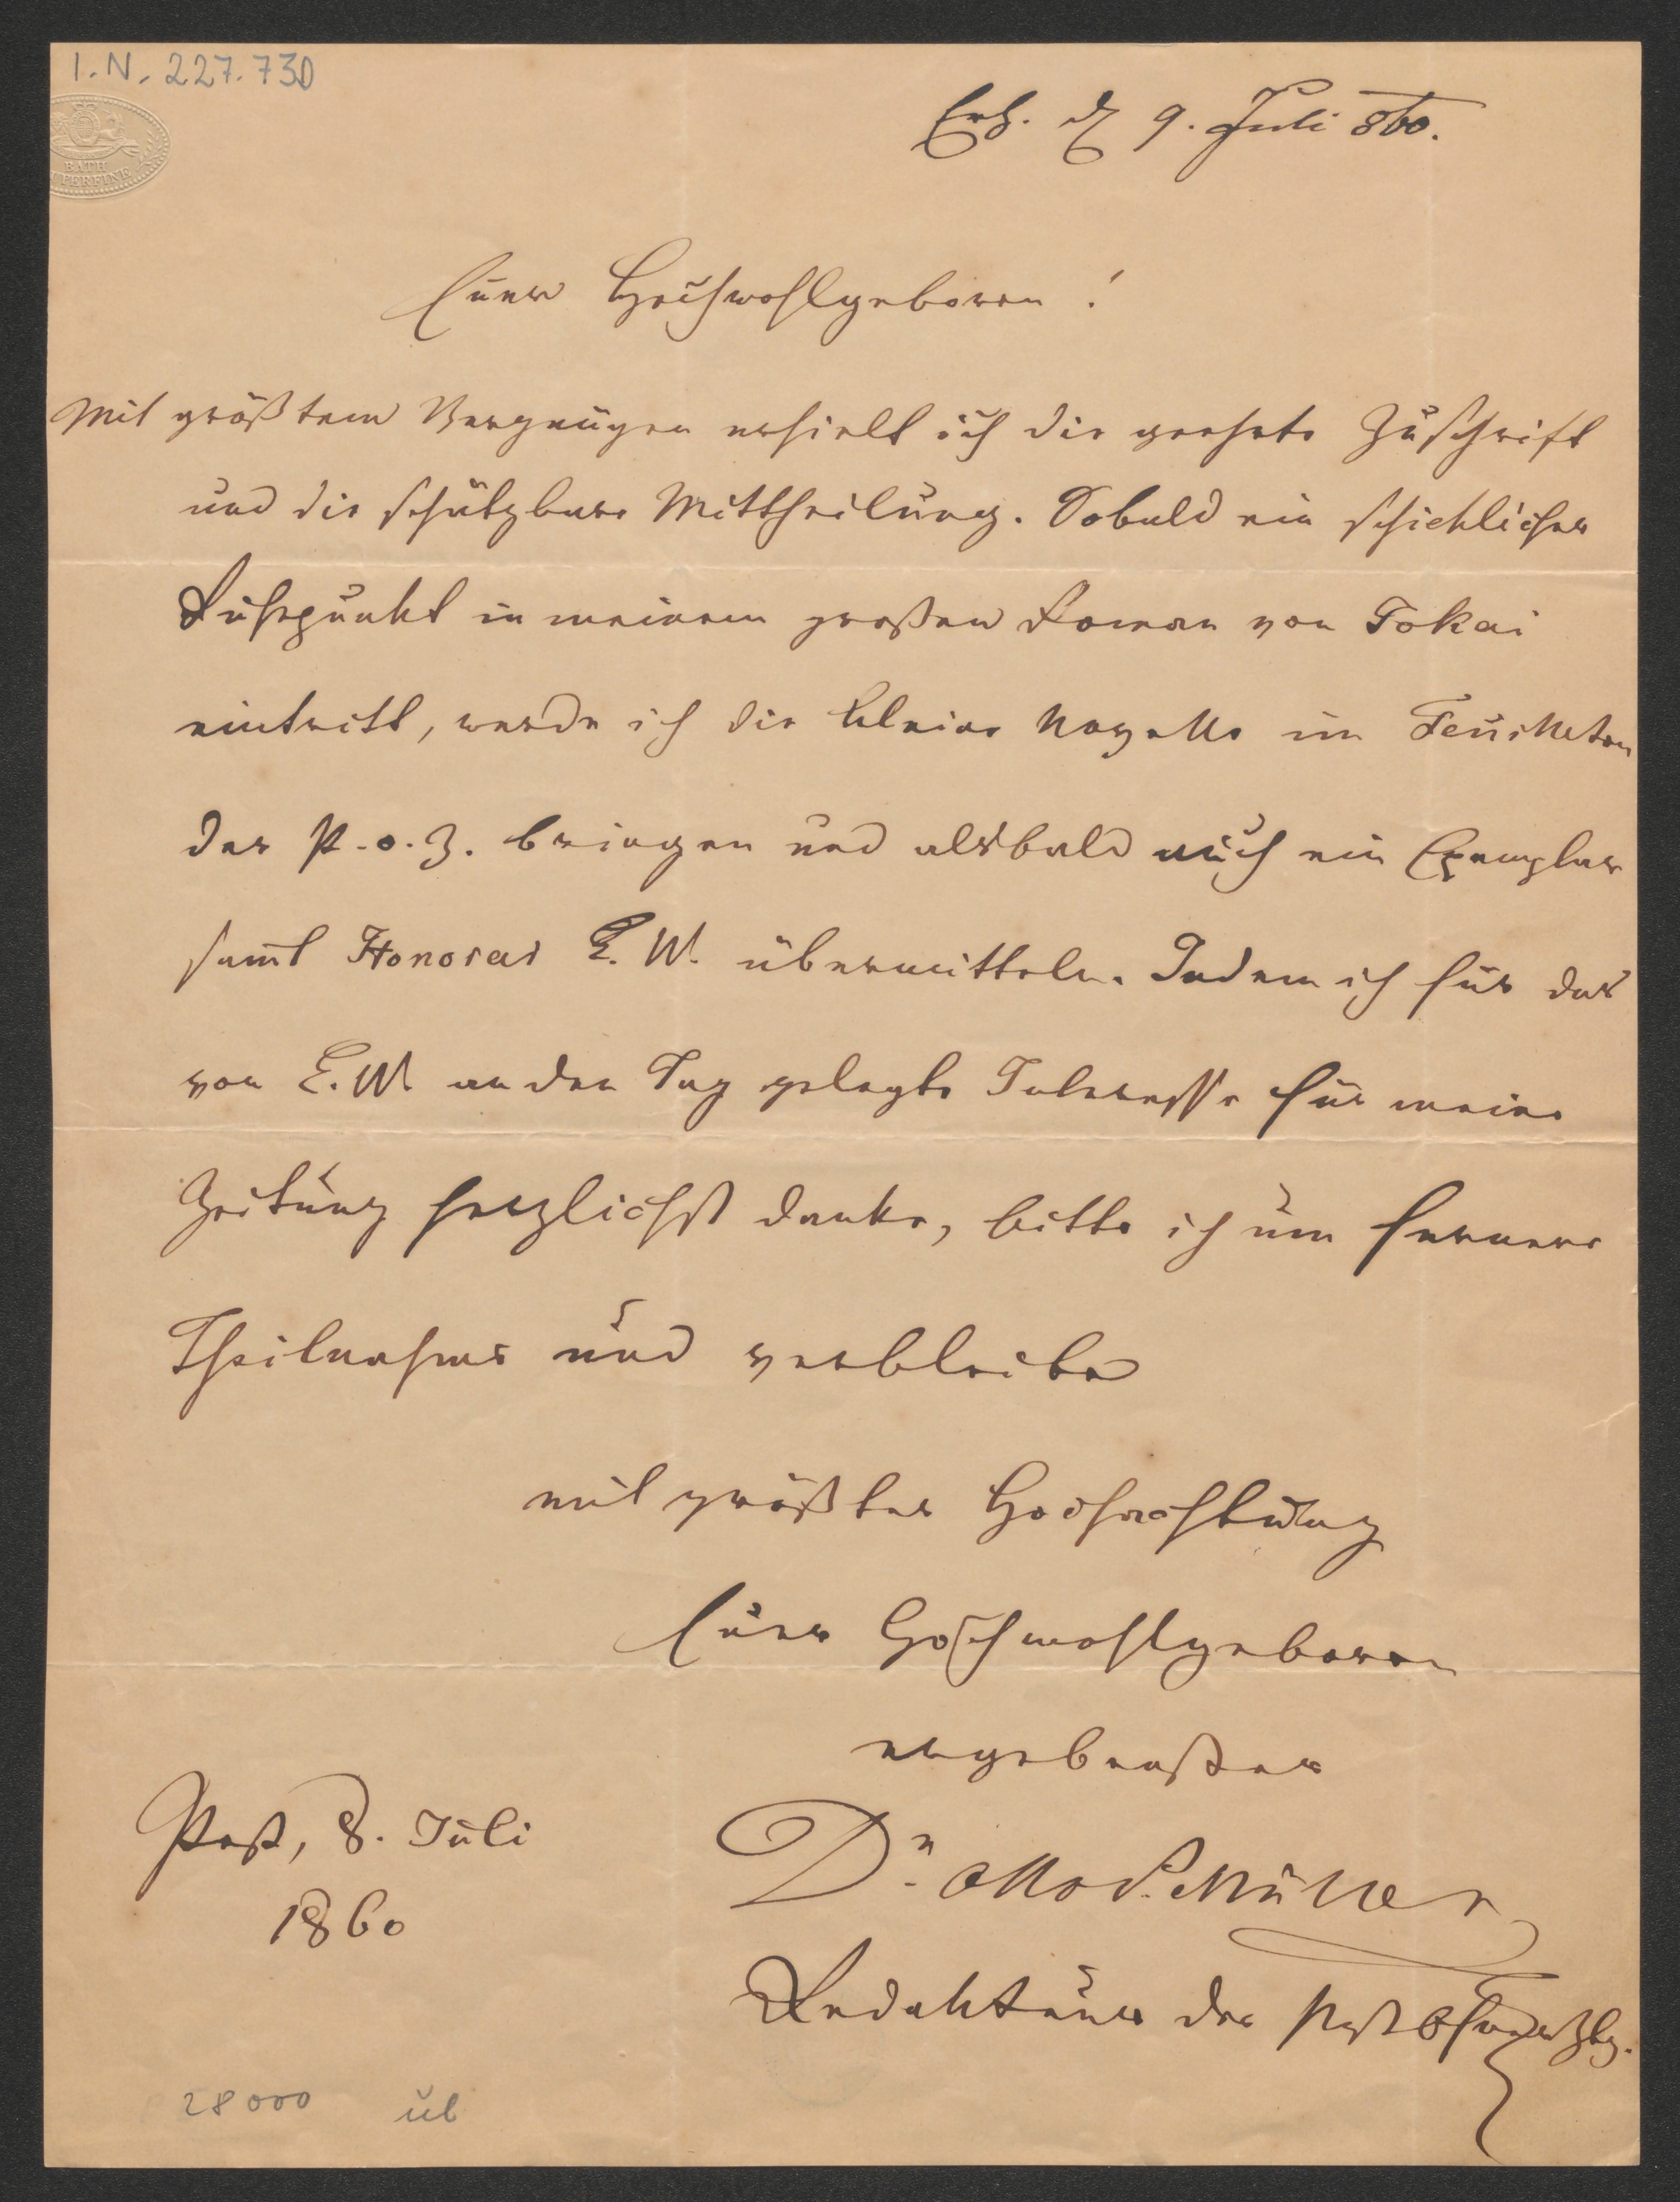 I. N. 227.730
BATH
SUPERFINE
Erh. d 9. Juli 860.
Euer Hochwohlgeboren!
Mit größtem Vergnügen erhielt ich die geehrte Zuschrift
und die schätzbare Mittheilung. Sobald ein schicklicher
Ruhepunkt in meinem großen Roman von Jokai
eintritt, werde ich die kleine Novelle im Feuilleton
der P.-o. Z. bringen und alsbald auch ein Exemplar
samt Honorar E. W. übermitteln. Indem ich für das
von E. W. an den Tag gelegte Interesse für meine
Zeitung herzlichst danke, bitte ich um fernere
Theilnahme und verbleibe
mit größter Hochachtung
Euer Hochwohlgeboren
ergebenster
Pest, 8. Juli
1860
Dr. Müller
Redakteur der Pest Ofner Ztg.
28000 üb